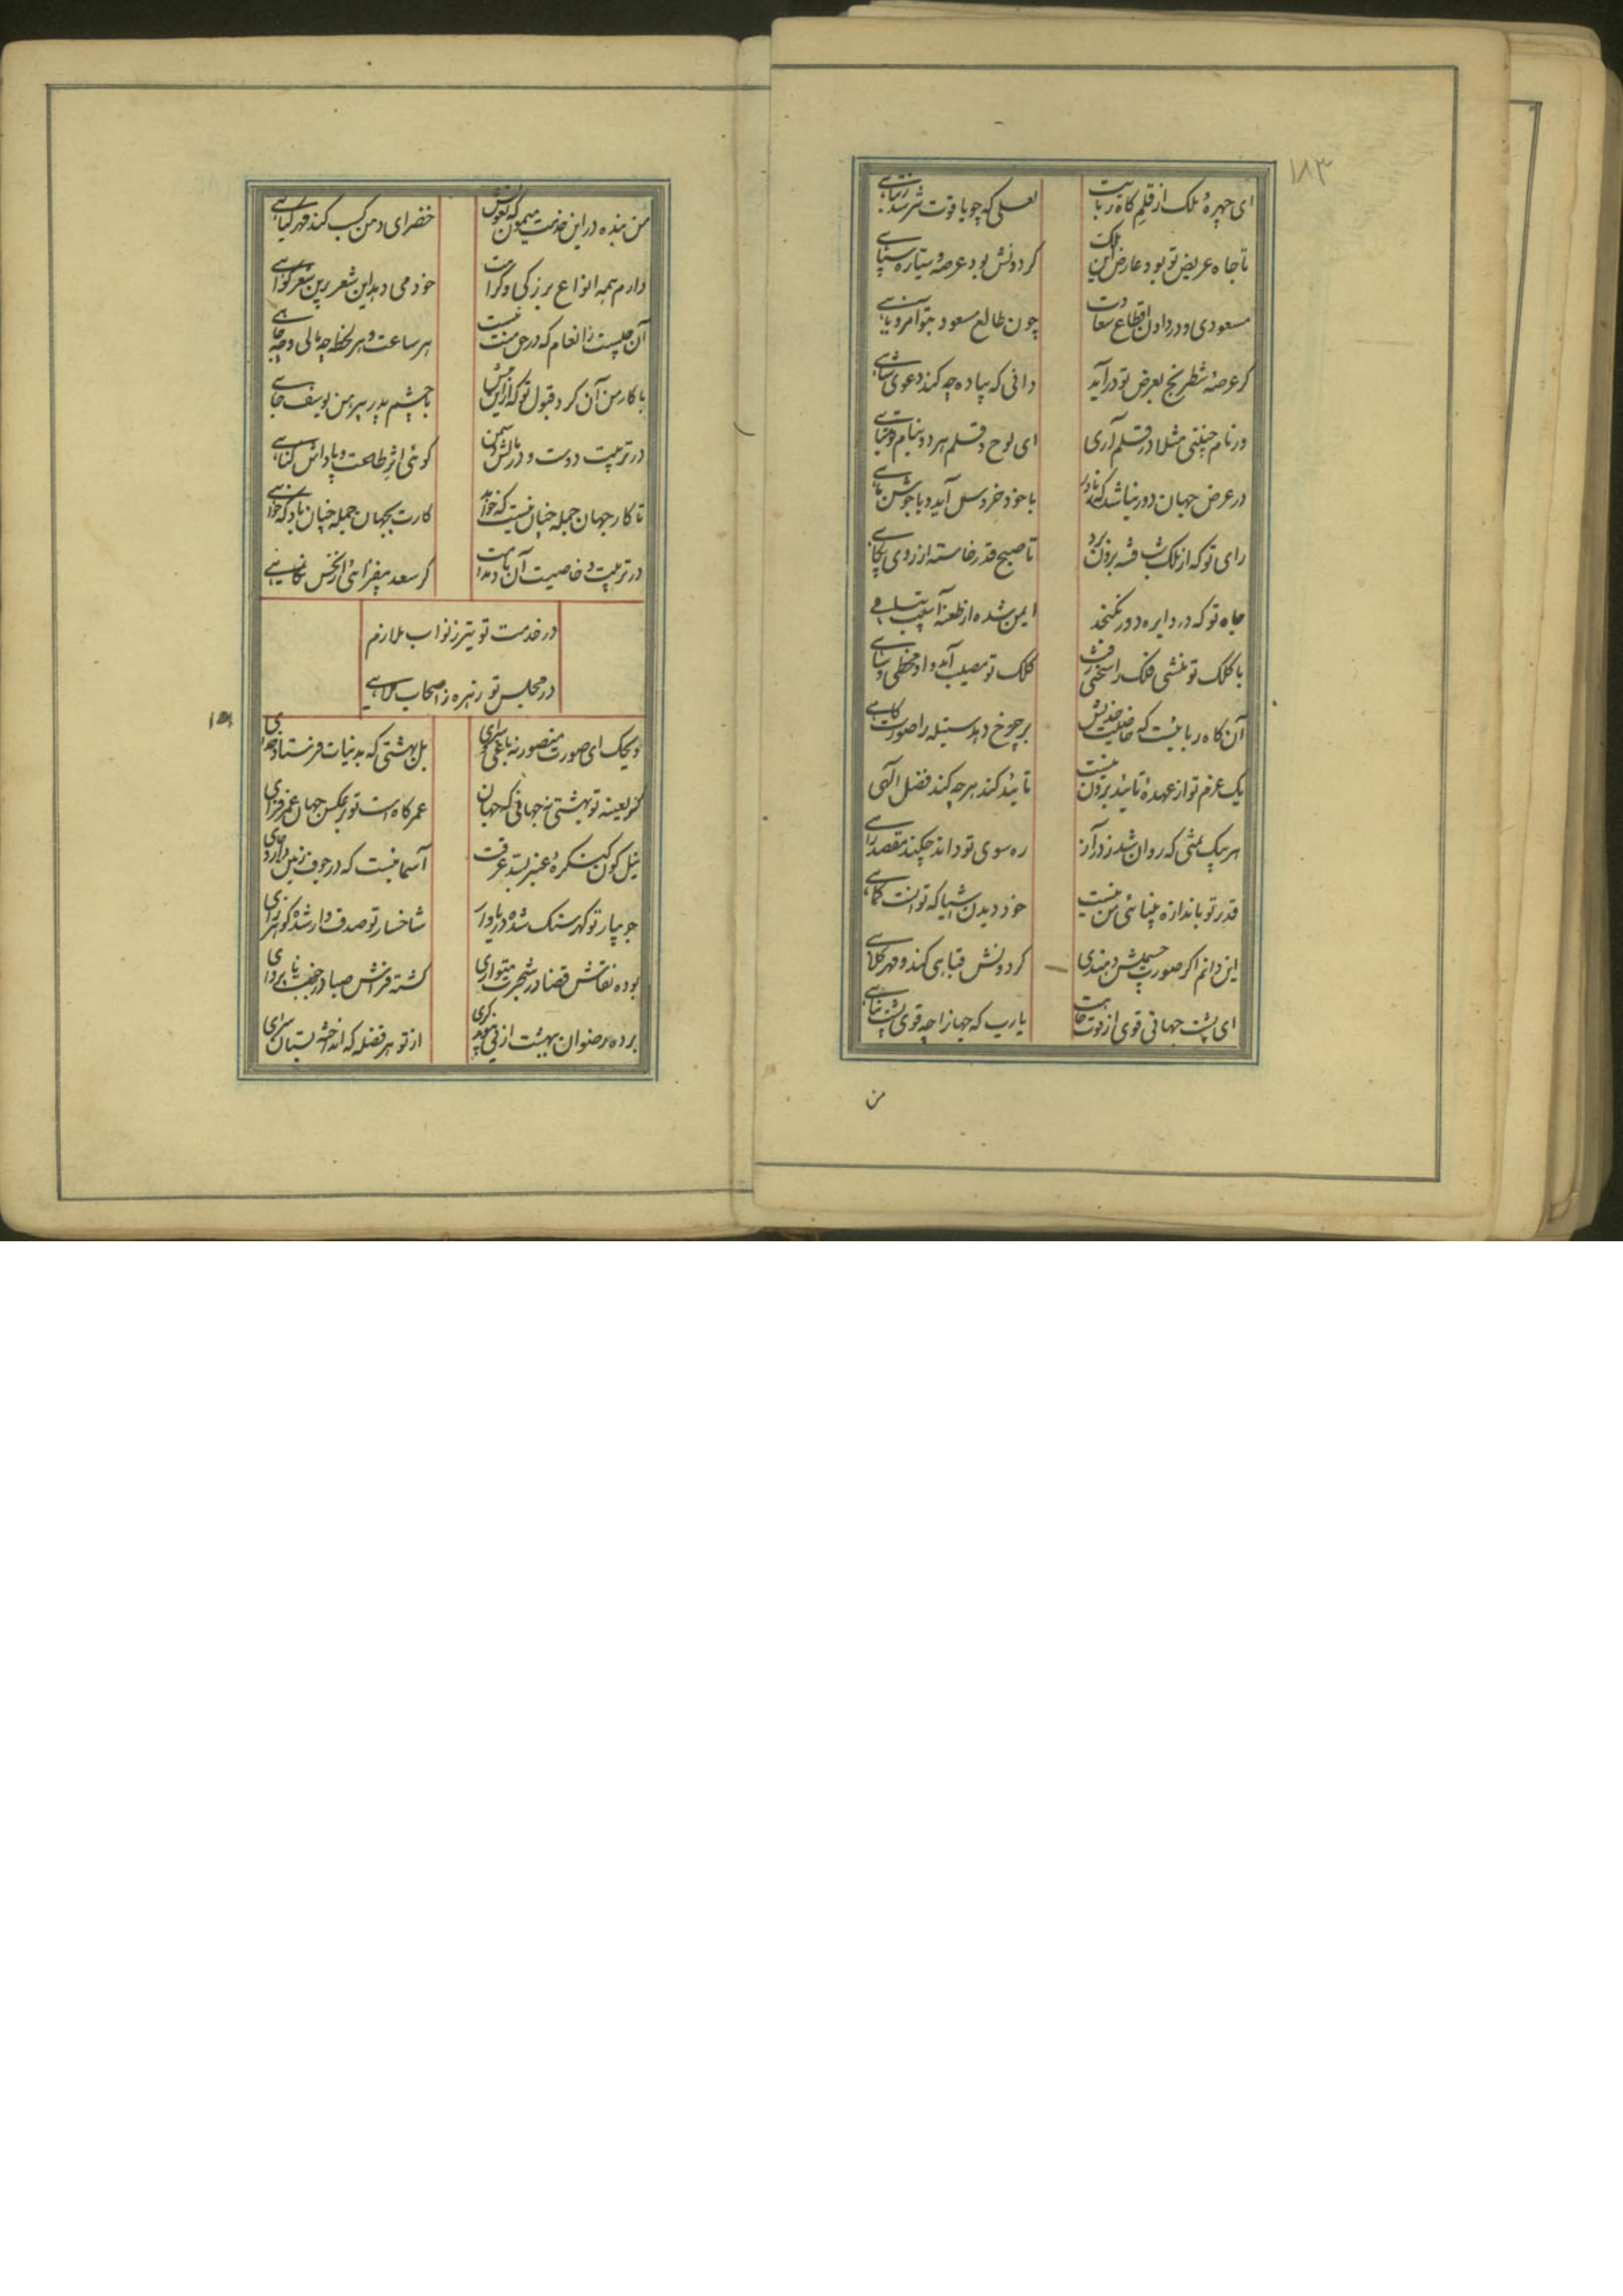 ۱۸۳
ای چهرهٔ ملک از قلم کاه ربایت
لعلی که چو یاقوت نترسد ز تباهی
تا جاه عریض تو بود عارض این ملک
گردونش بود عرصه و سیاره سپاهی
مسعودی و در دادن اقطاع سعادت
چون طالع مسعود تو آمر و ناهی
گر عرصهٔ شطرنج بعرض تو درآید
دانی که پیاده چه کند دعوی شاهی
ور نام حبشی مثلا در قلم آری
ای لوح و قلم هر دو بنام تو مباهی
در عرض جهان دور نباشد که
با خود خروس آید و با جوشن ماهی
رای تو که از ملک شب فتنه برون برد
تا صبح قدر خاسته از روی پگاهی
جاه تو که در دایرهٔ دور نگنجد
ایمن شده از طعنهٔ آسیب تناهی
با کلک تو منشی فلک را سخنی رفت
کلک تو مصیب آمد و او مخطی و ساهی
آن کاه ربائیست که خاصیت جذبش
بر چرخ دهد سنبله را صورت کاهی
یک عزم تو از عهدهٔ تائید برون نیست
تائید کند هر چه کند فضل الهی
هر پیک تمنی که روان شد ز در آز
ره سوی تو داند چکند مقصد راهی
قدر تو باندازهٔ بینائی من نیست
خود دیدن اشیا که توانست کماهی
این دانم اگر صورت جسمیش دهندی
گردونش قبائی کند و مهر کلاهی
ای پشت جهانی قوی از قوت جاهت
یارب که جهانرا چه قوی پشت و پناهی
من
من بنده در این خدمت میمون که بعونش
خضرای دمن کسب کند مهر گیاهی
دارم همه انواع بزرگی و کرامت
خود می دهد این شعر برین شعر گواهی
آن چیست ز انعام که در حق منت نیست
هر ساعت و هر لحظه چه مالی و چه جاهی
با کار من آن کرد قبول تو کزین پیش
با چشم پدر پیرهن یوسف چاهی
در تربیت دوست و در مالش دشمن
گوئی اثر طاعت و پاداش گناهی
تا کار جهان جمله چنان نیست که خواهند
کارت بجهان جمله چنان باد که خواهی
در تربیت و خاصیت آن باد مدامت
گر سعد بیفزائی از نحس بکاهی
در خدمت تو تیر ز نواب ملازم
در مجلس تو زهره ز اصحاب ملاهی
ویحک ای صورت منصوریه باغی و سرای
بل بهشتی که بدنیات فرستاد خدای
گر بعینه تو بهشتی نه جهانی که جهان
عمر کاهست و تو بر عکس جهان عمر فزای
نیل گون کنگرهٔ عنبر بید عرقت
آسمانیست که در جوف زمین دارد جای
جویبار تو گهر سنگ شده دریاوار
شاخسار تو صدف وار شده گوهر زای
بوده نقاش قضا در شجرت متواری
گشته فراش صبا در چمنت ناپروای
برده رضوان بهشت از پی پیوند گری
از تو هر فضله که انداخته بستان سرای